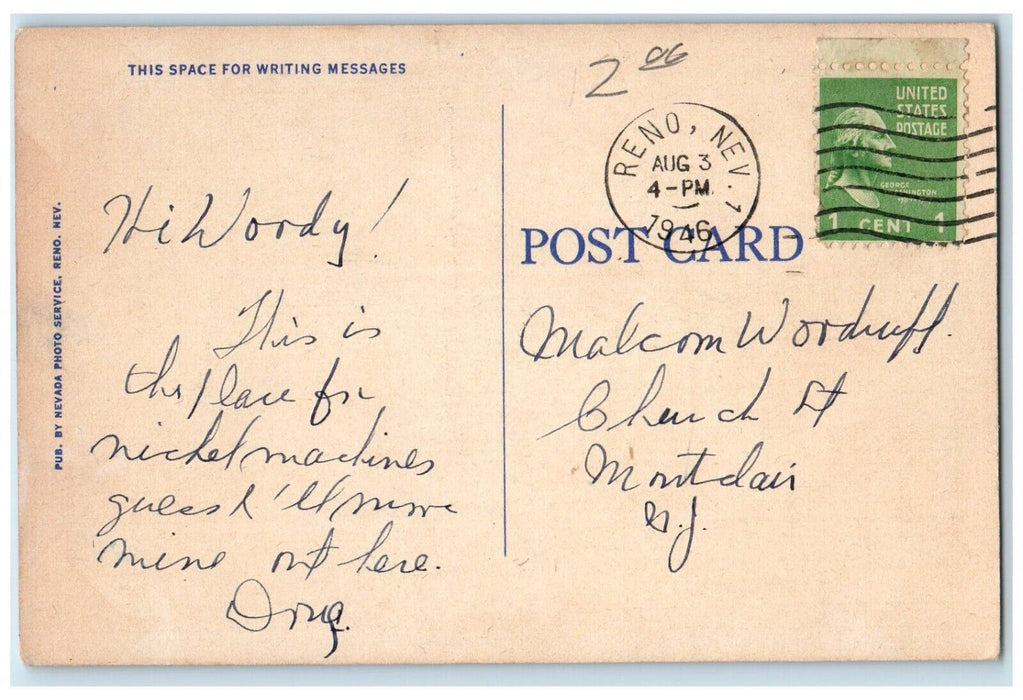 THIS SPACE FOR WRITING MESSAGES
2 06
RENO, NEV. 1
AUG 3
4-PM
1946
UNITED
STATES
POSTAGE
GEORGE
WASHINGTON
1 CENT 1
POST CARD
PUB. BY NEVADA PHOTO SERVICE, RENO. NEV.
Hi Woody!
This is
the place for
nickel machines
guess I'll move
mine out here.
Doug.
Malcom Woodruff.
Church St
Montclair
N.J.